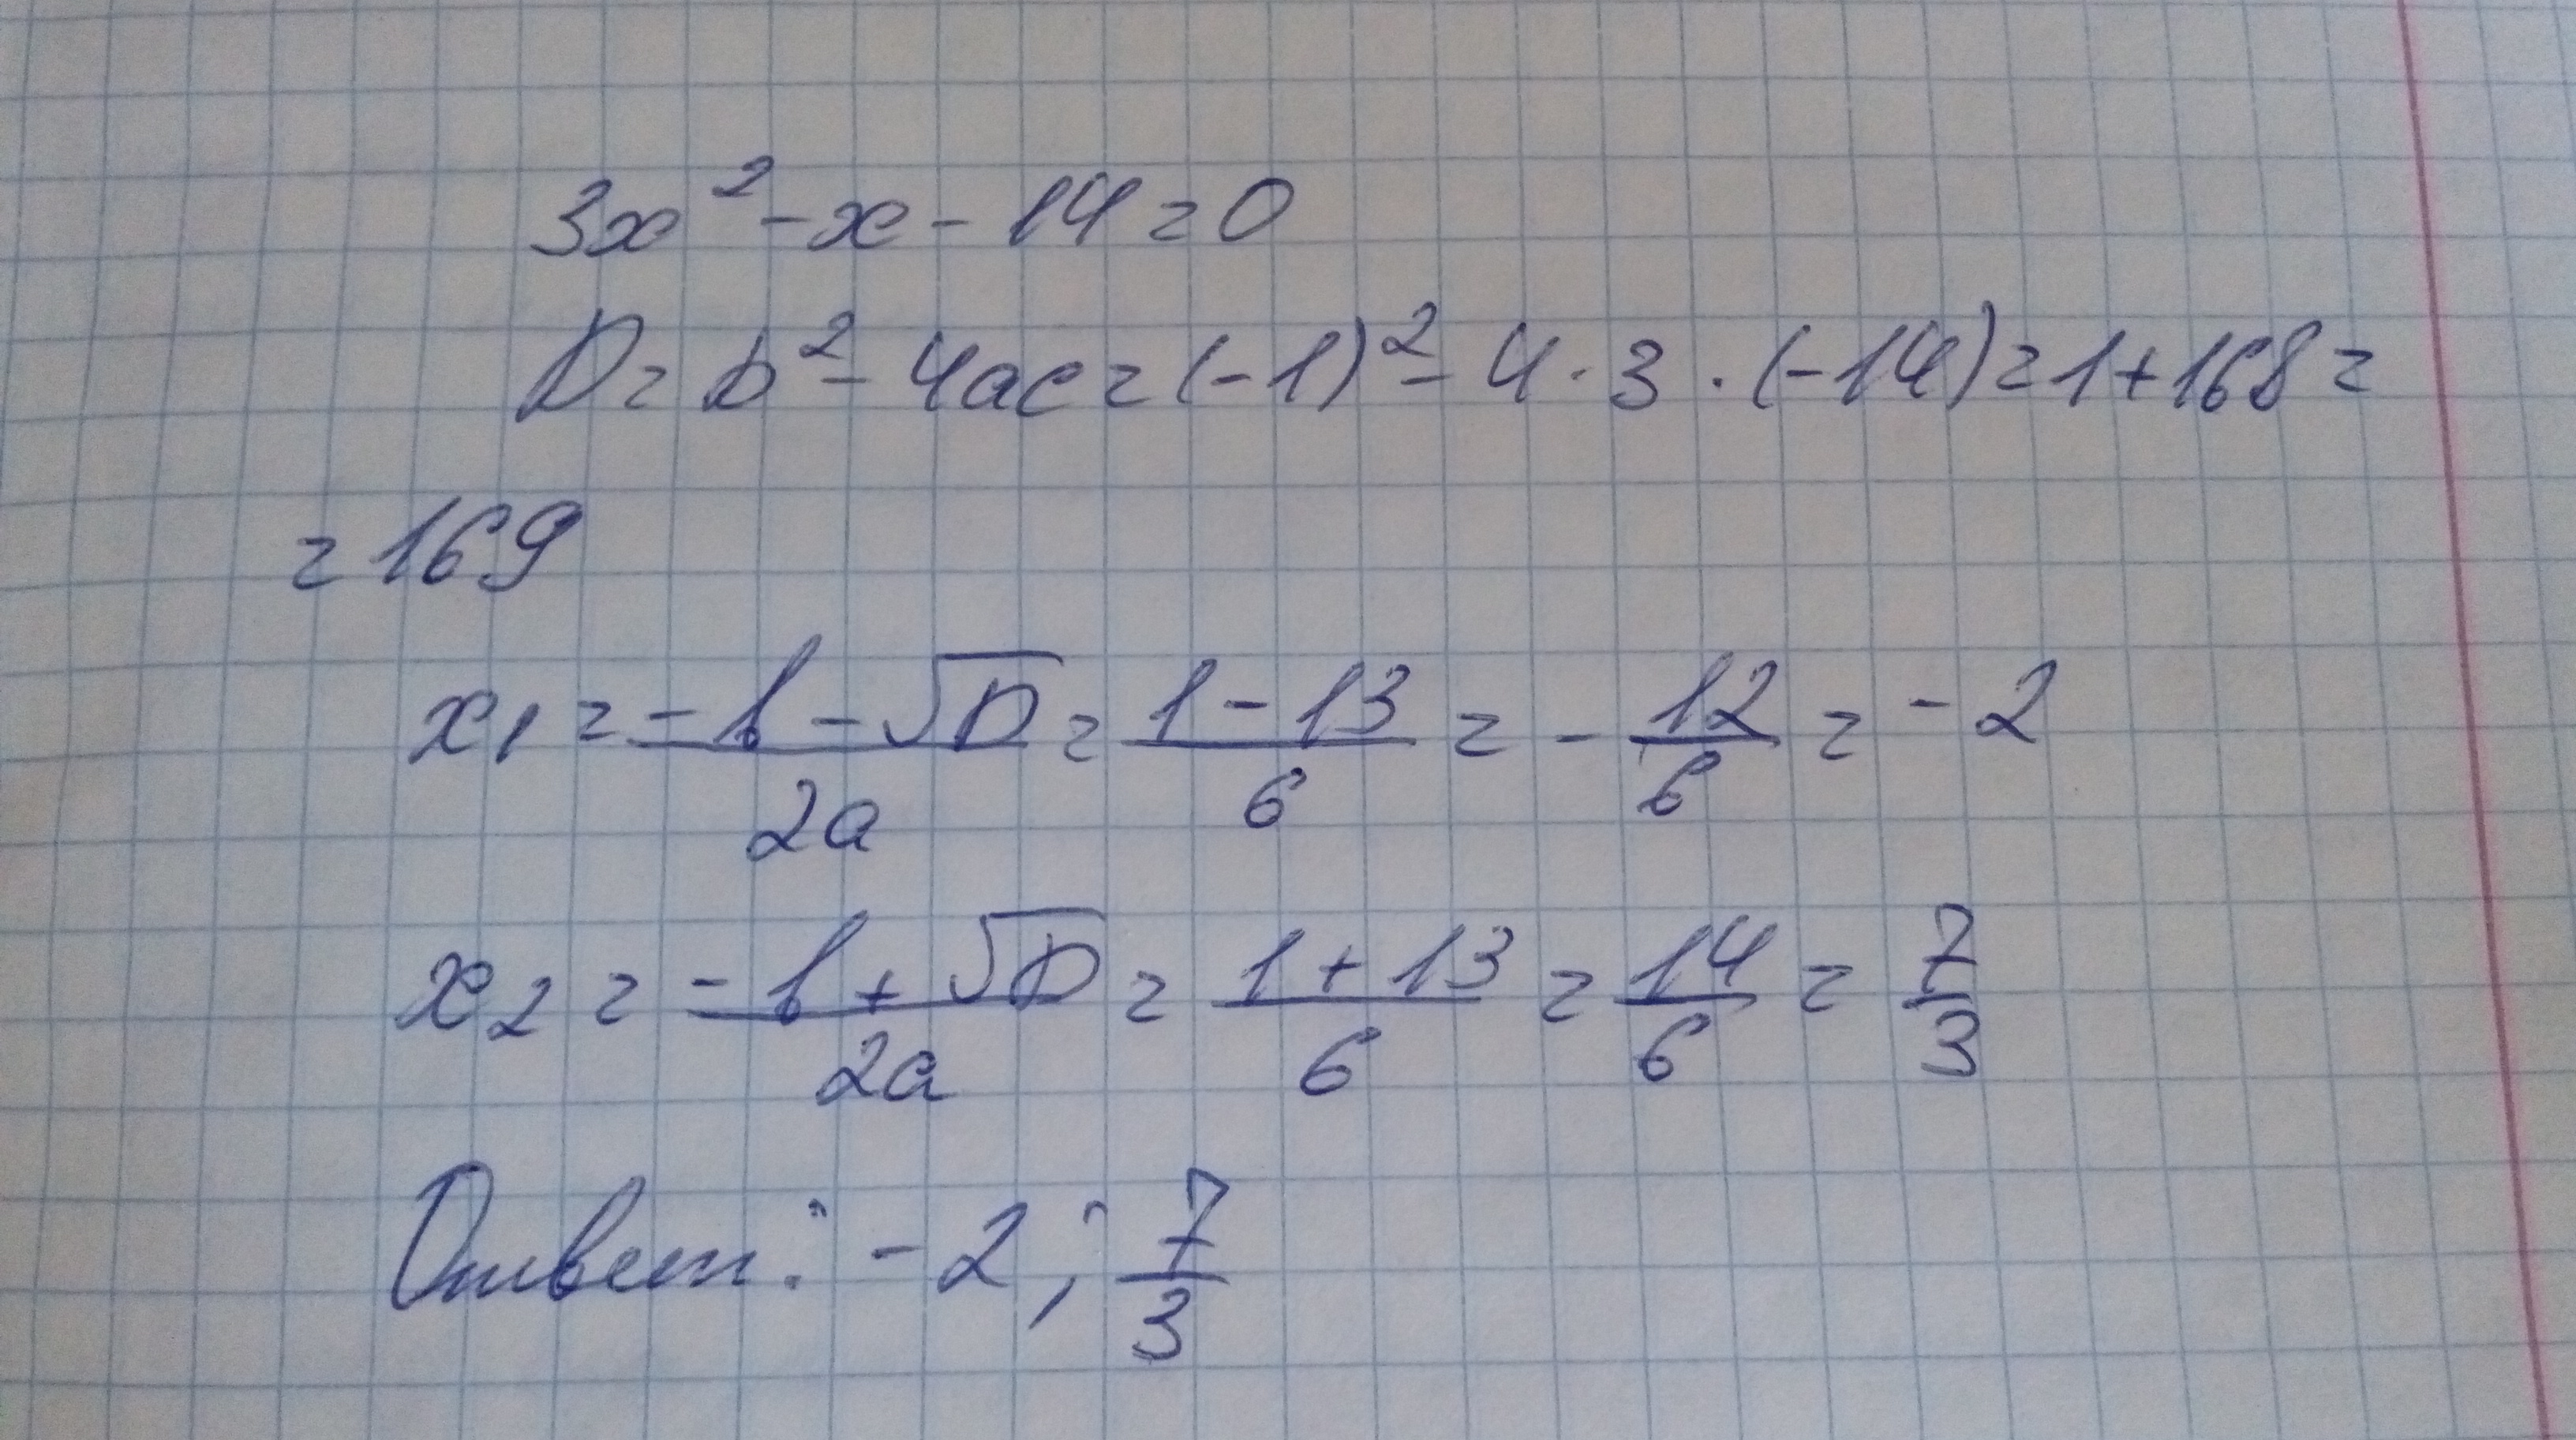 3x² - x - 14 = 0
D = b² - 4ac = (-1)² - 4 · 3 · (-14) = 1 + 168 =
= 169
x₁ = (-b - √D)/(2a) = (1 - 13)/6 = -12/6 = -2
x₂ = (-b + √D)/(2a) = (1 + 13)/6 = 14/6 = 7/3
Ответ: -2; 7/3